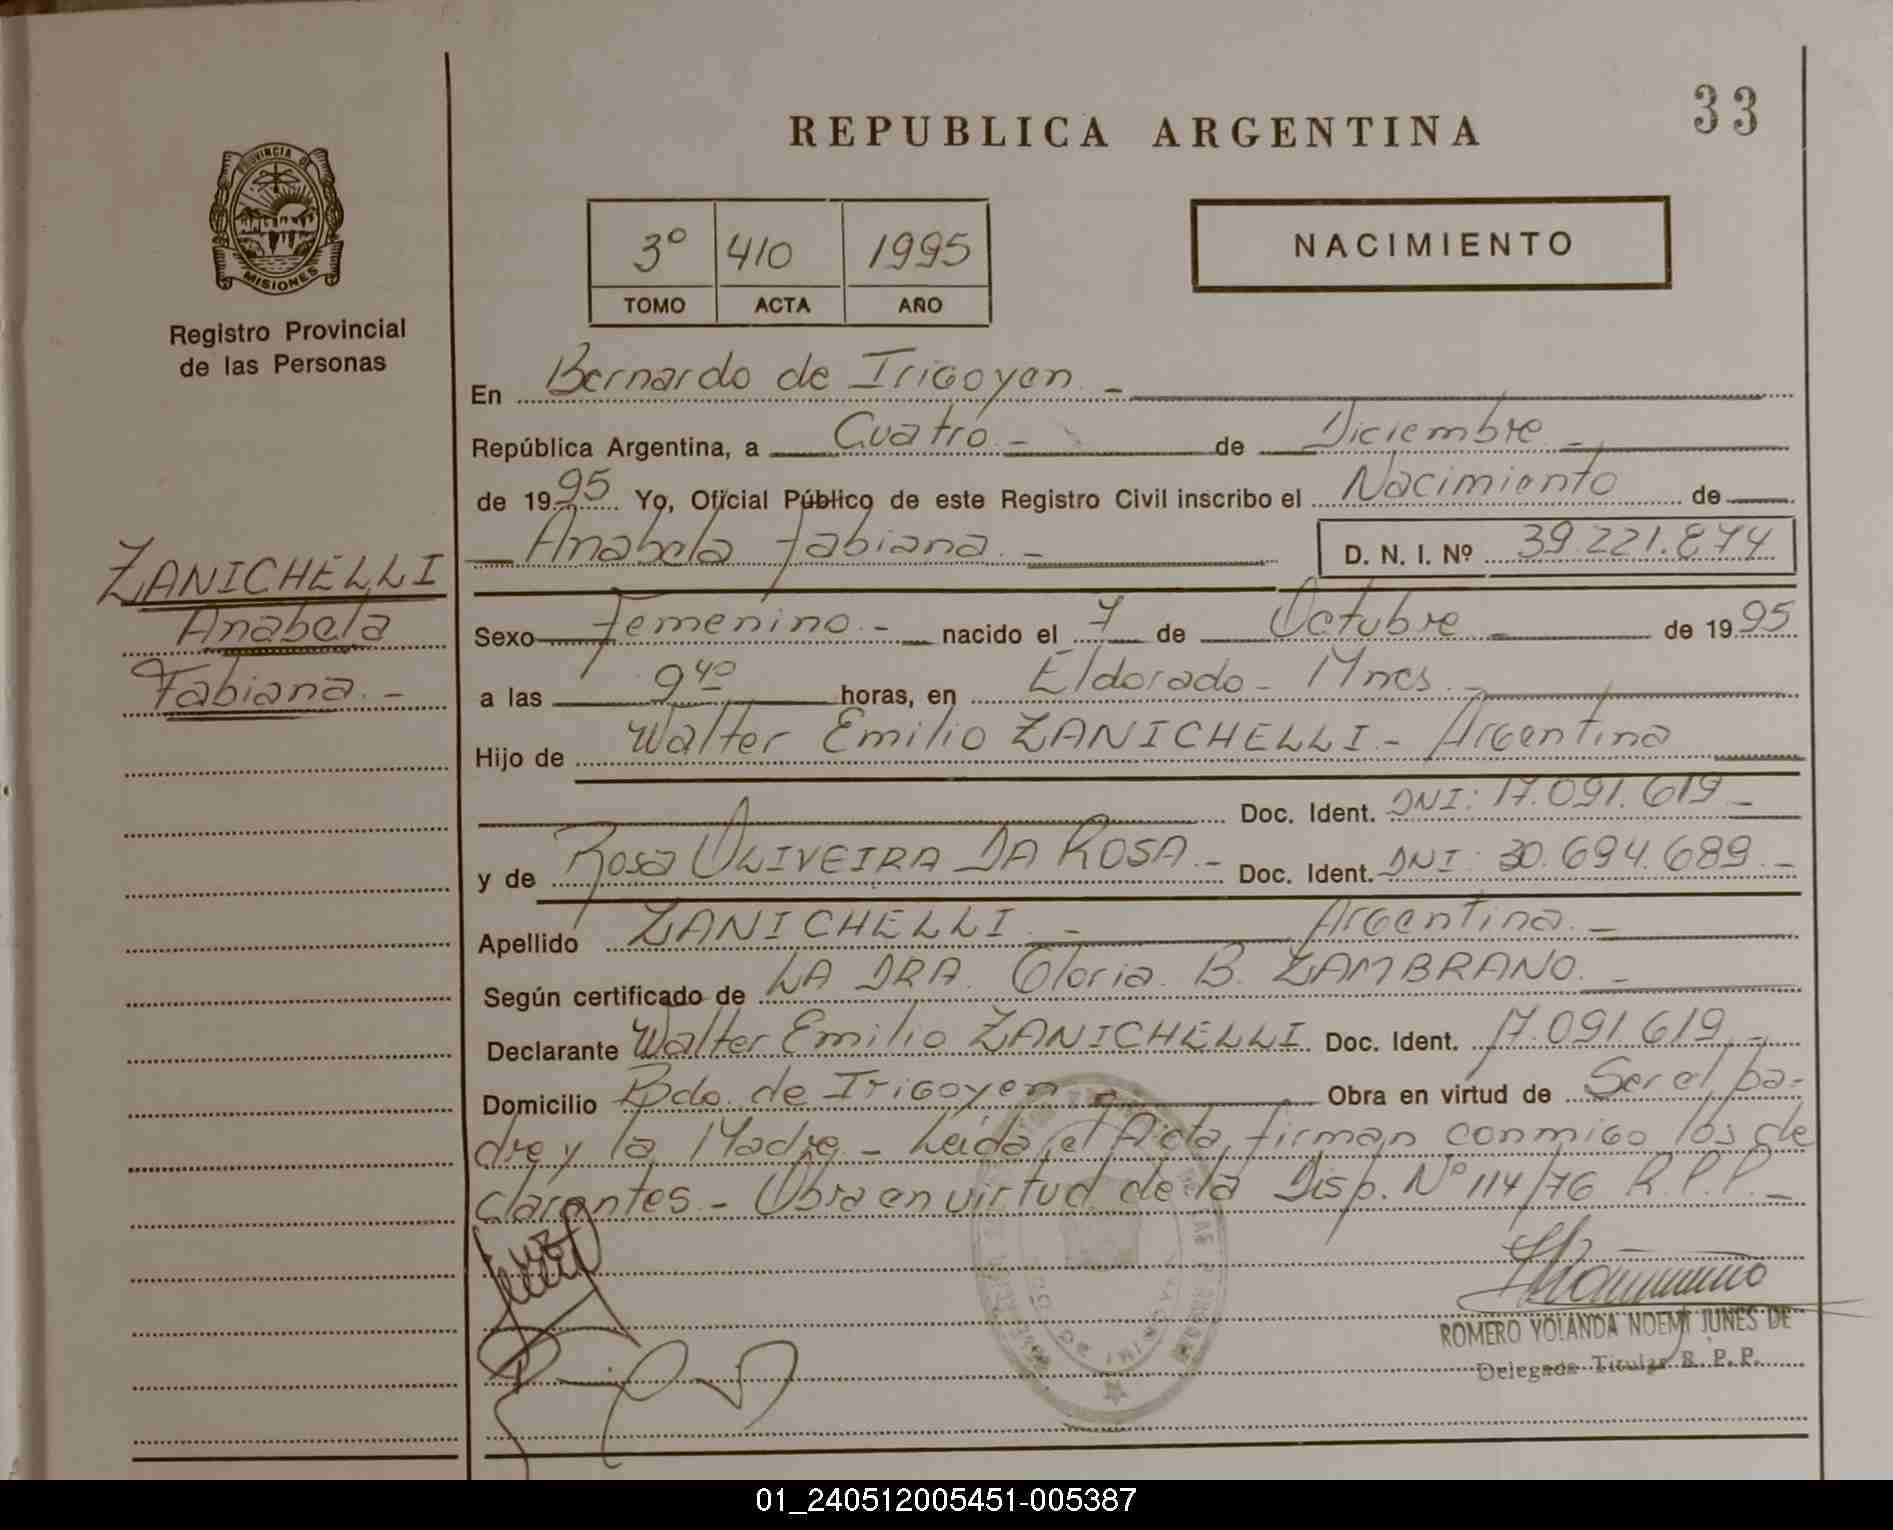 33
REPUBLICA ARGENTINA
PROVINCIA DE
MISIONES
Registro Provincial
de las Personas
3º 410 1995
TOMO ACTA AÑO
NACIMIENTO
ZANICHELLI
Anabela
Fabiana.-
En Bernardo de Irigoyen.-
República Argentina, a Cuatro.- de Diciembre.-
de 1995. Yo, Oficial Público de este Registro Civil inscribo el Nacimiento de
Anabela Fabiana.- D. N. I. Nº 39.221.874
Sexo Femenino.- nacido el 7 de Octubre de 1995
a las 9 40 horas, en Eldorado - Mnes.-
Hijo de Walter Emilio ZANICHELLI.- Argentina
Doc. Ident. DNI: 17.091.619.-
y de Rosa OLIVEIRA DA ROSA.- Doc. Ident. DNI: 30.694.689.-
Apellido ZANICHELLI.- Argentina.-
Según certificado de LA DRA. Gloria. B. ZAMBRANO.-
Declarante Walter Emilio ZANICHELLI Doc. Ident. 17.091.619.-
Domicilio Bdo. de Irigoyen.- Obra en virtud de Ser el pa-
dre y la Madre - Leída el Acta, firman conmigo los de
clarantes.- Obra en virtud de la Disp. Nº 114/76 R.P.P.-
ROMERO YOLANDA NOEMI JUNES DE
Delegada Titular R. P. P.
01_240512005451-005387